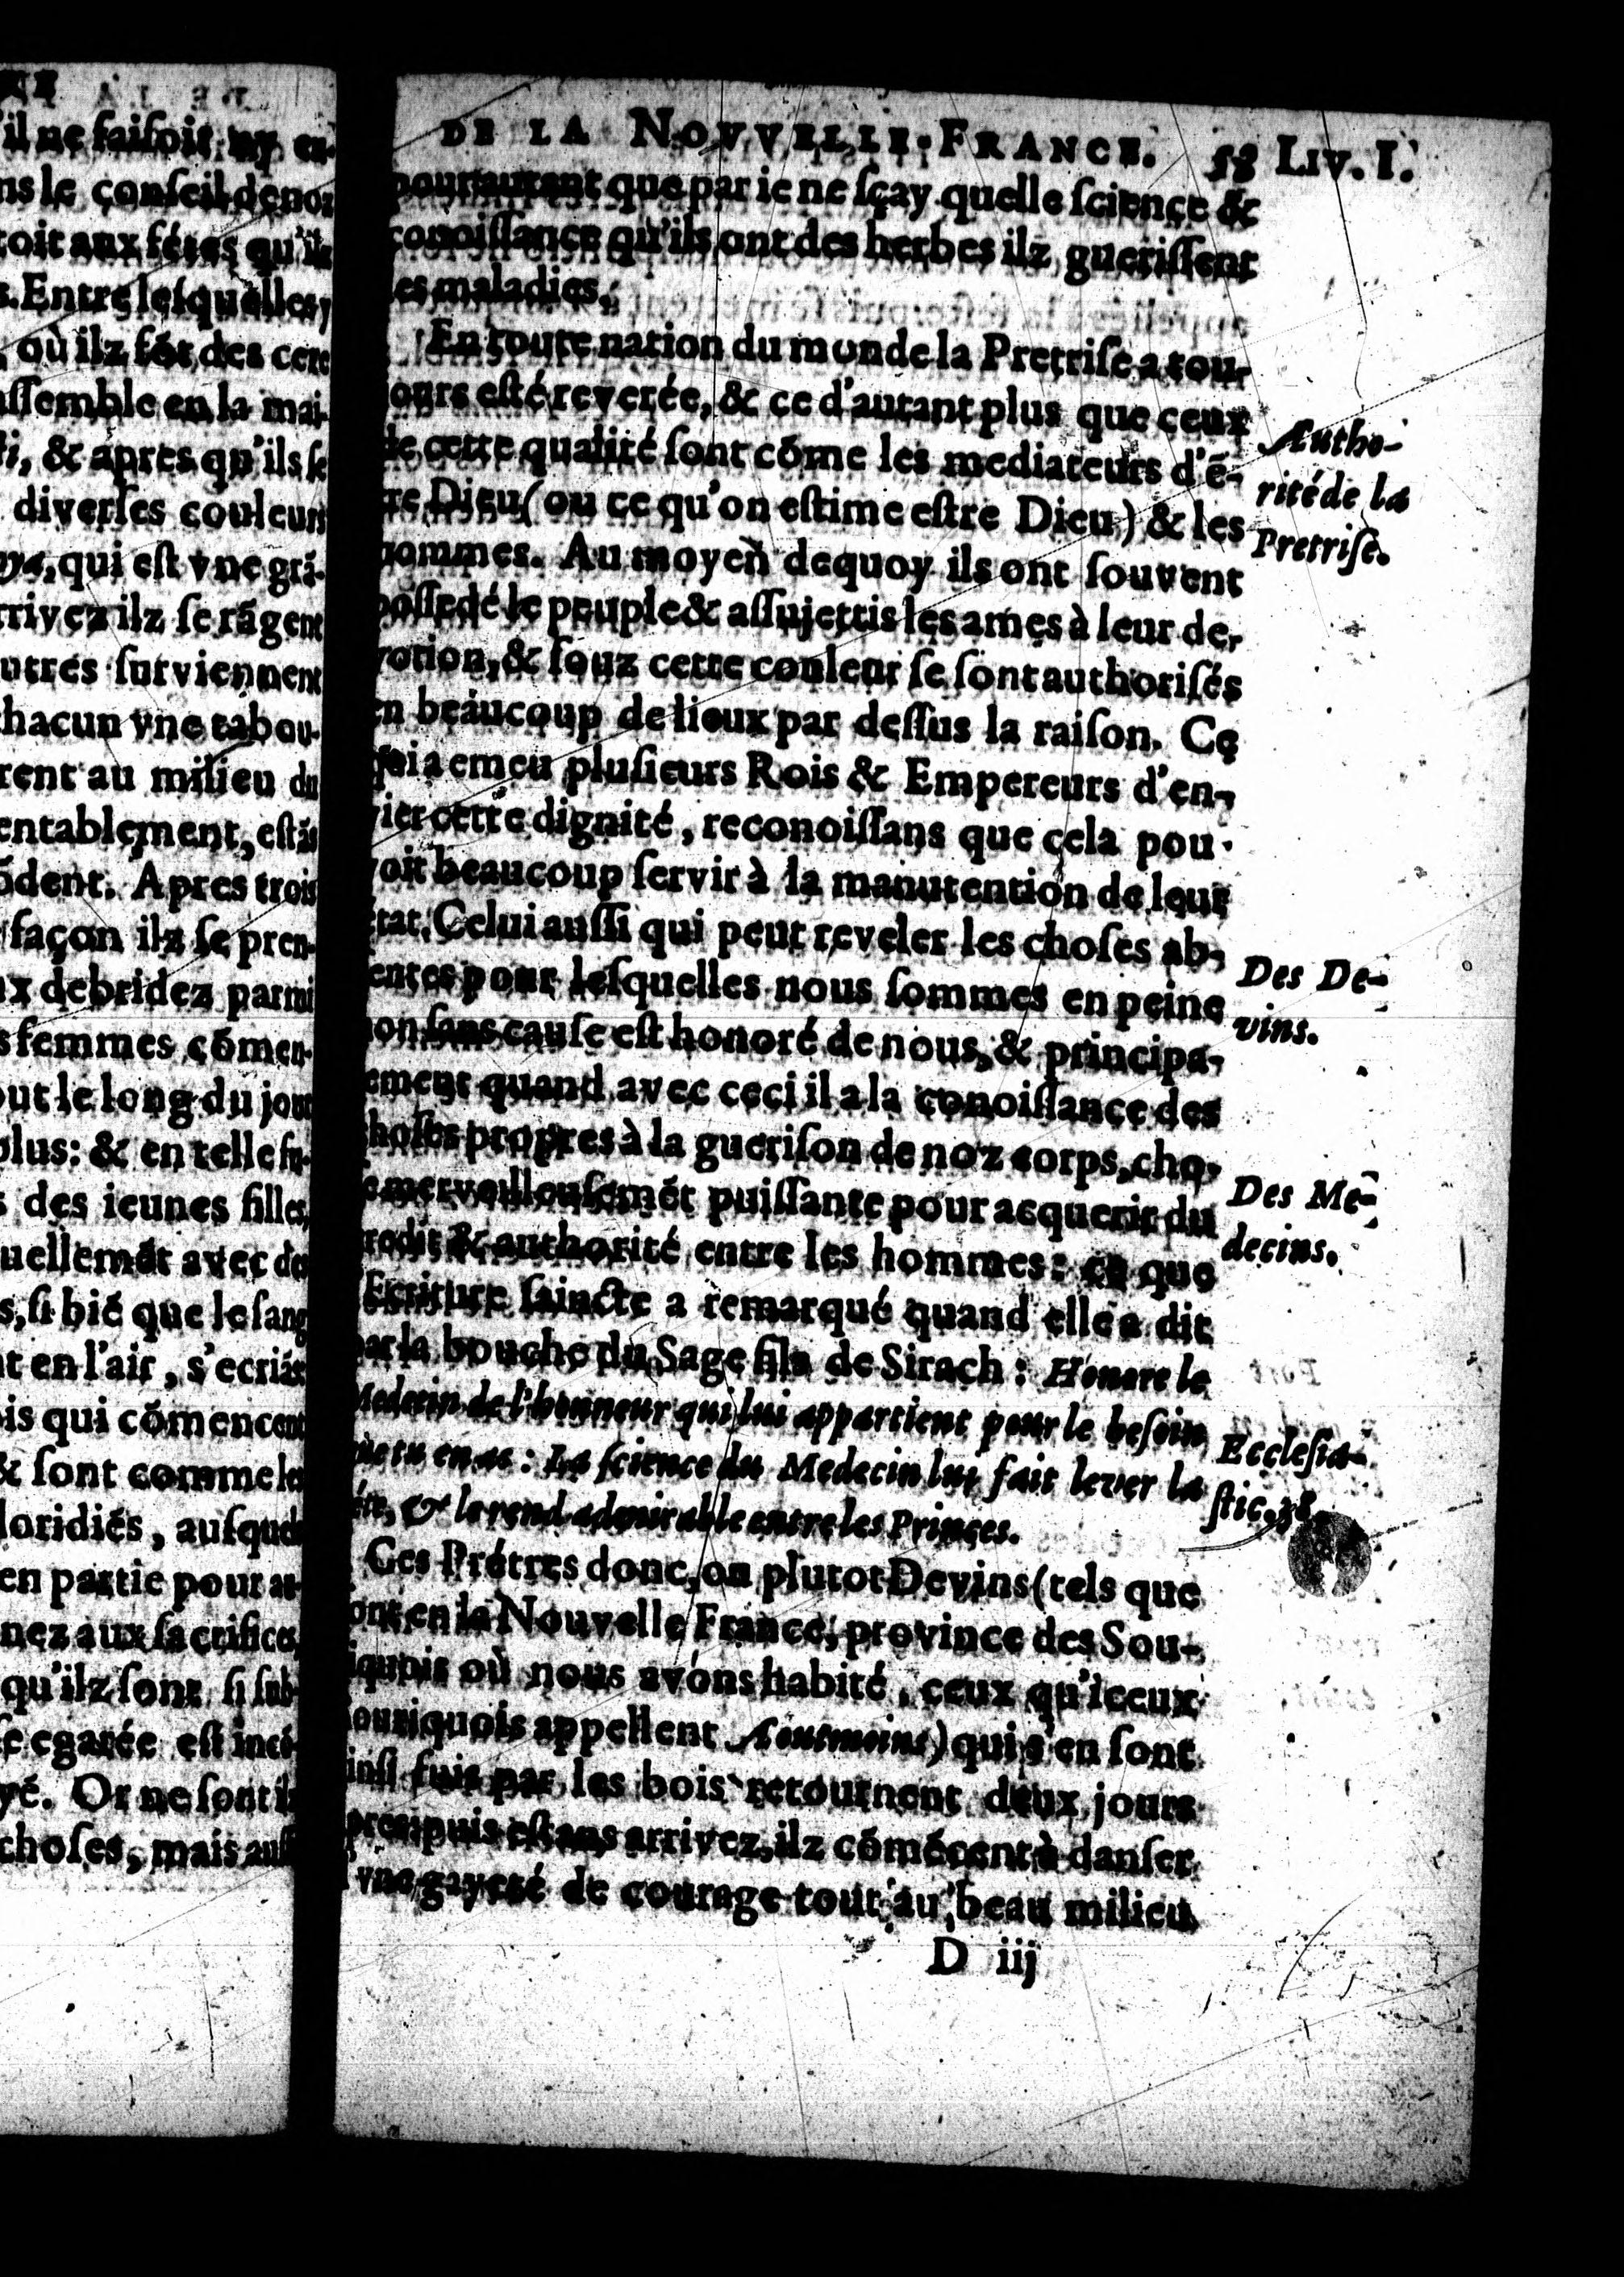 il ne faiſoit ny en-
ns le conſeil de noz
toit aux fétes qu'ilz
s. Entre leſquelles y
, où ilz fót des cere
aſſemble en la mai-
di, & apres qu'ils ſe
diverſes couleurs
ya, qui eſt vne grã-
rrivez ilz ſe rãgent
utres ſurviennent
hacun vne tabou-
rent au milieu du
entablement, eſtãs
õdent. Apres trois
façon ilz ſe pren-
x debridez parmi
s femmes cõmen-
out le long du jour
plus: & en telle fu-
s des ieunes filles,
uellemẽt avec des
s, ſi biẽ que le ſang
t en l'air, s'ecriãs
is qui cõmencent
& ſont comme les
loridiẽs, auſquels
en partie pour at-
nez aux ſacrifices,
qu'ilz ſont ſi ſub-
ſe egarée eſt inci-
yé. Or ne ſont ils
choſes, mais auſſi
DE LA NOVVELLE-FRANCE. 58 LIV. I.
pourtautant que par ie ne ſçay quelle ſcience &
conoiſſance qu'ils ont des herbes ilz gueriſſent
les maladies.
En toute nation du monde la Pretriſe a tou-
jours eſté reverée, & ce d'autant plus que ceux
de cette qualité ſont cõme les mediateurs d'ẽ-
tre Dieu (ou ce qu'on eſtime eſtre Dieu) & les
hommes. Au moyen dequoy ils ont ſouvent
poſſedé le peuple & aſſujettis les ames à leur de-
votion, & ſouz cette couleur ſe ſont authoriſés
en beaucoup de lieux par deſſus la raiſon. Ce
qui a emeu pluſieurs Rois & Empereurs d'en-
vier cette dignité, reconoiſſans que cela pou-
voit beaucoup ſervir à la manutention de leur
état. Celui auſſi qui peut reveler les choſes ab-
ſentes pour leſquelles nous ſommes en peine
non ſans cauſe eſt honoré de nous, & principa-
lement quand avec ceci il a la conoiſſance des
choſes propres à la gueriſon de noz corps, cho-
ſe merveilleuſemẽt puiſſante pour acquerir du
credit & authorité entre les hommes: ce que
l'Ecriture ſaincte a remarqué quand elle a dit
par la bouche du Sage fils de Sirach: Honore le
Medecin de l'honneur qui lui appartient pour le beſoin
que tu en as: La ſcience du Medecin lui fait lever la
téte, & le rend admirable entre les Princes.
Ces Prétres donc, ou plutot Devins (tels que
ſont en la Nouvelle France, province des Sou-
riquois où nous avons habité, ceux qu'iceux
Souriquois appellent Aoutmoins) qui s'en ſont
ainſi fuis par les bois retournent deux jours
apres: puis eſtans arrivez, ilz cõmẽcent à danſer
d'vne gayeté de courage tout au beau milieu
D iij
Autho-
rité de la
Pretriſe.
Des De-
vins.
Des Me-
decins.
Eccleſia-
ſtic. 38.